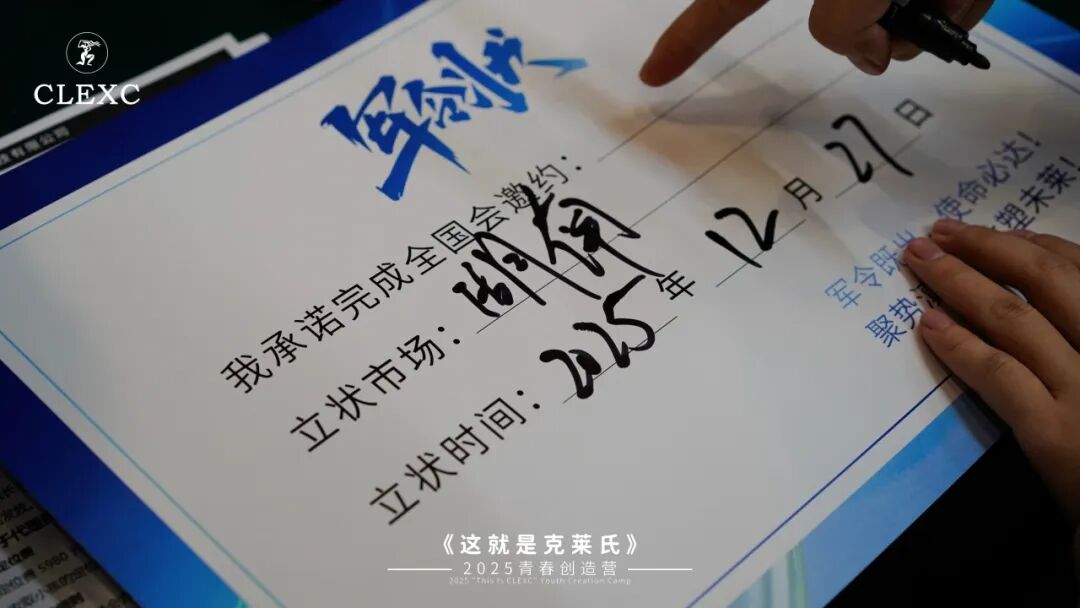 CLEXC
限公司
军令状
我承诺完成全国会邀约：
立状市场：湖南
立状时间：2025年12月27日
军令既出 使命必达！
聚势 塑未莱！
5980
《这就是克莱氏》
2025青春创造营
2025 "This Is CLEXC" Youth Creation Camp